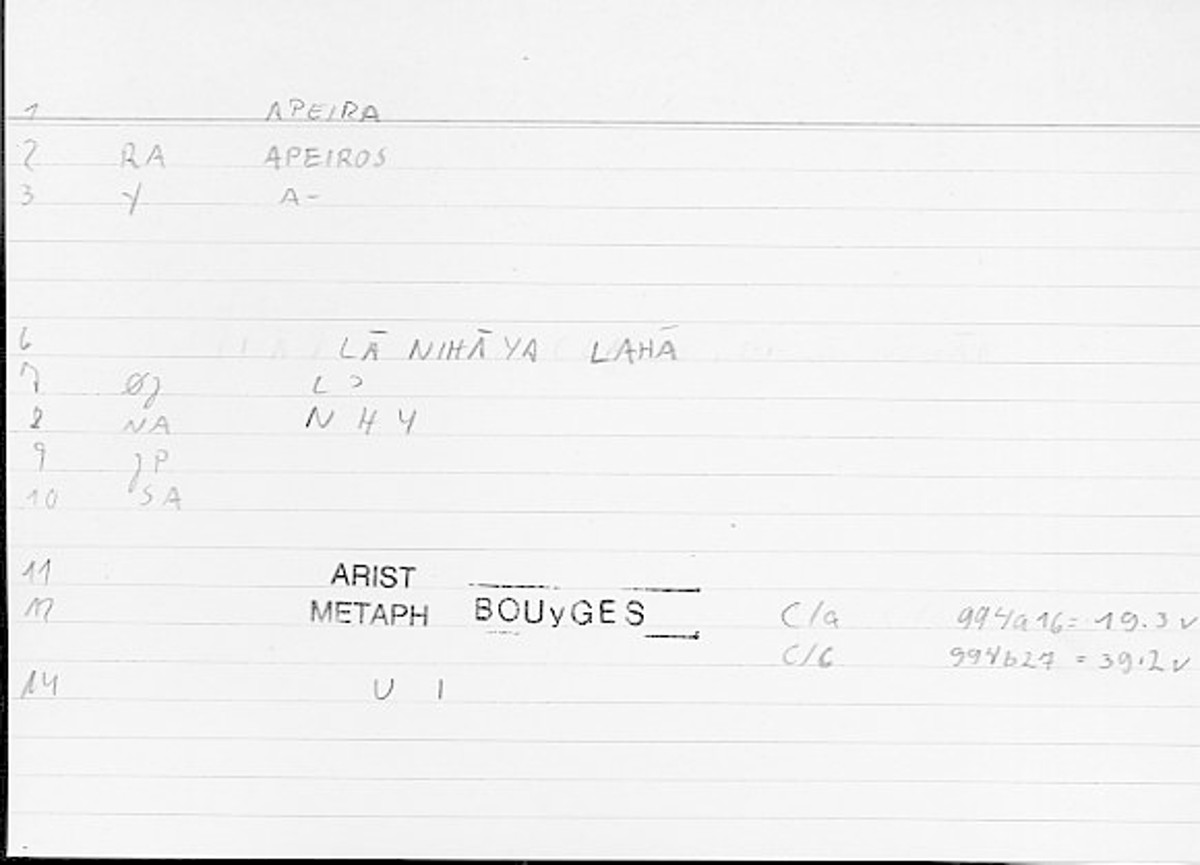 1 APEIRA
2 RA APEIROS
3 Y A-
6 LĀ NIHĀYA LAHĀ
7 Øj L ɔ
8 NA N H Y
9 jP
10 SA
11 ARIST
12 METAPH BOUyGES C/a 994a16 = 19.3 v
C/6 994b27 = 39.2 v
14 U I